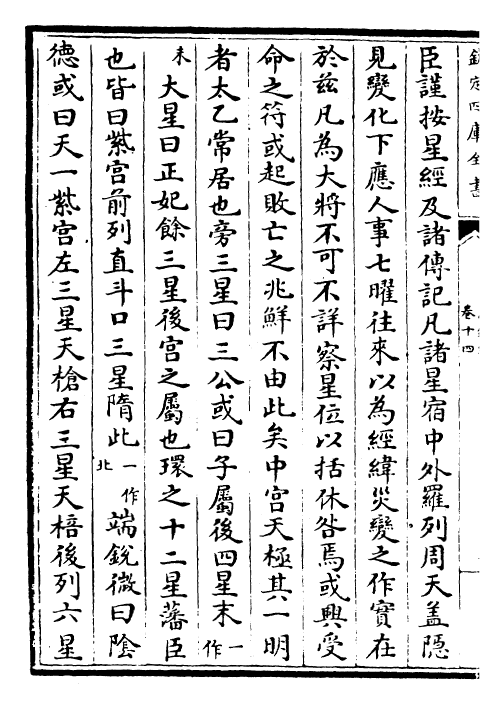 欽定四庫全書
卷十四
臣謹按星經及諸傳記凡諸星宿中外羅列周天盖隠
見變化下應人事七曜往來以為經緯災變之作實在
於兹凡為大將不可不詳察星位以括休咎焉或興受
命之符或起敗亡之兆鮮不由此矣中宫天極其一明
者太乙常居也旁三星曰三公或曰子屬後四星末一作
未大星曰正妃餘三星後宫之屬也環之十二星藩臣
也皆曰紫宫前列直斗口三星隋此一作北端鋭微曰陰
德或曰天一紫宫左三星天槍右三星天棓後列六星